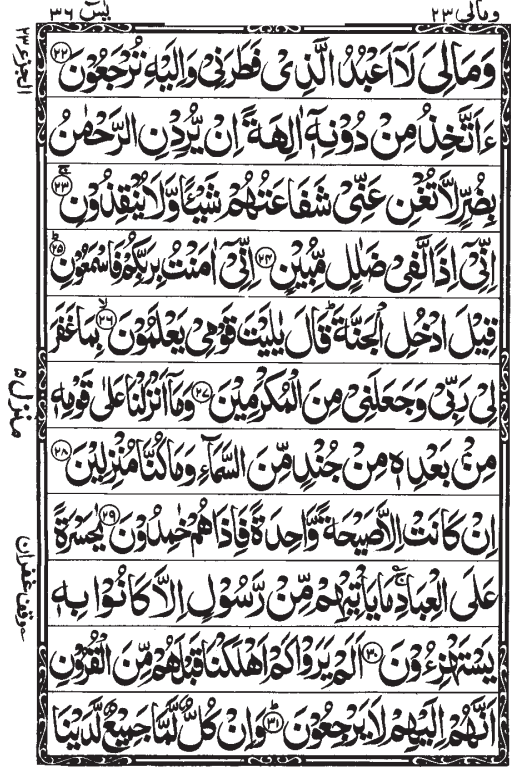 ومالی ٢٣
يٰسٓ ٣٦
وَمَا لِىَ لَاۤ اَعۡبُدُ الَّذِىۡ فَطَرَنِىۡ وَاِلَيۡهِ تُرۡجَعُوۡنَ ﴿٢٢﴾
ءَاَتَّخِذُ مِنۡ دُوۡنِهٖۤ اٰلِهَةً اِنۡ يُّرِدۡنِ الرَّحۡمٰنُ
بِضُرٍّ لَّا تُغۡنِ عَنِّىۡ شَفَاعَتُهُمۡ شَيۡـًٔا وَّلَا يُنۡقِذُوۡنِ​ۚ ﴿٢٣﴾
اِنِّىۡۤ اِذًا لَّفِىۡ ضَلٰلٍ مُّبِيۡنٍ ﴿٢٤﴾ اِنِّىۡۤ اٰمَنۡتُ بِرَبِّكُمۡ فَاسۡمَعُوۡنِؕ ﴿٢٥﴾
قِيۡلَ ادۡخُلِ الۡجَـنَّةَ ؕ قَالَ يٰلَيۡتَ قَوۡمِىۡ يَعۡلَمُوۡنَۙ ﴿٢٦﴾ بِمَا غَفَرَ
لِىۡ رَبِّىۡ وَجَعَلَنِىۡ مِنَ الۡمُكۡرَمِيۡنَ ﴿٢٧﴾ وَمَاۤ اَنۡزَلۡنَا عَلٰى قَوۡمِهٖ
مِنۡۢ بَعۡدِهٖ مِنۡ جُنۡدٍ مِّنَ السَّمَآءِ وَمَا كُنَّا مُنۡزِلِيۡنَ ﴿٢٨﴾
اِنۡ كَانَتۡ اِلَّا صَيۡحَةً وَّاحِدَةً فَاِذَا هُمۡ خٰمِدُوۡنَ ﴿٢٩﴾ يٰحَسۡرَةً
عَلَى الۡعِبَادِ ۚؔ مَا يَاۡتِيۡهِمۡ مِّنۡ رَّسُوۡلٍ اِلَّا كَانُوۡا بِهٖ
يَسۡتَهۡزِءُوۡنَ ﴿٣٠﴾ اَلَمۡ يَرَوۡا كَمۡ اَهۡلَـكۡنَا قَبۡلَهُمۡ مِّنَ الۡقُرُوۡنِ
اَنَّهُمۡ اِلَيۡهِمۡ لَا يَرۡجِعُوۡنَؕ ﴿٣١﴾ وَاِنۡ كُلٌّ لَّمَّا جَمِيۡعٌ لَّدَيۡنَا
الجزء ٢٣
منزل ٥
وقف غفران